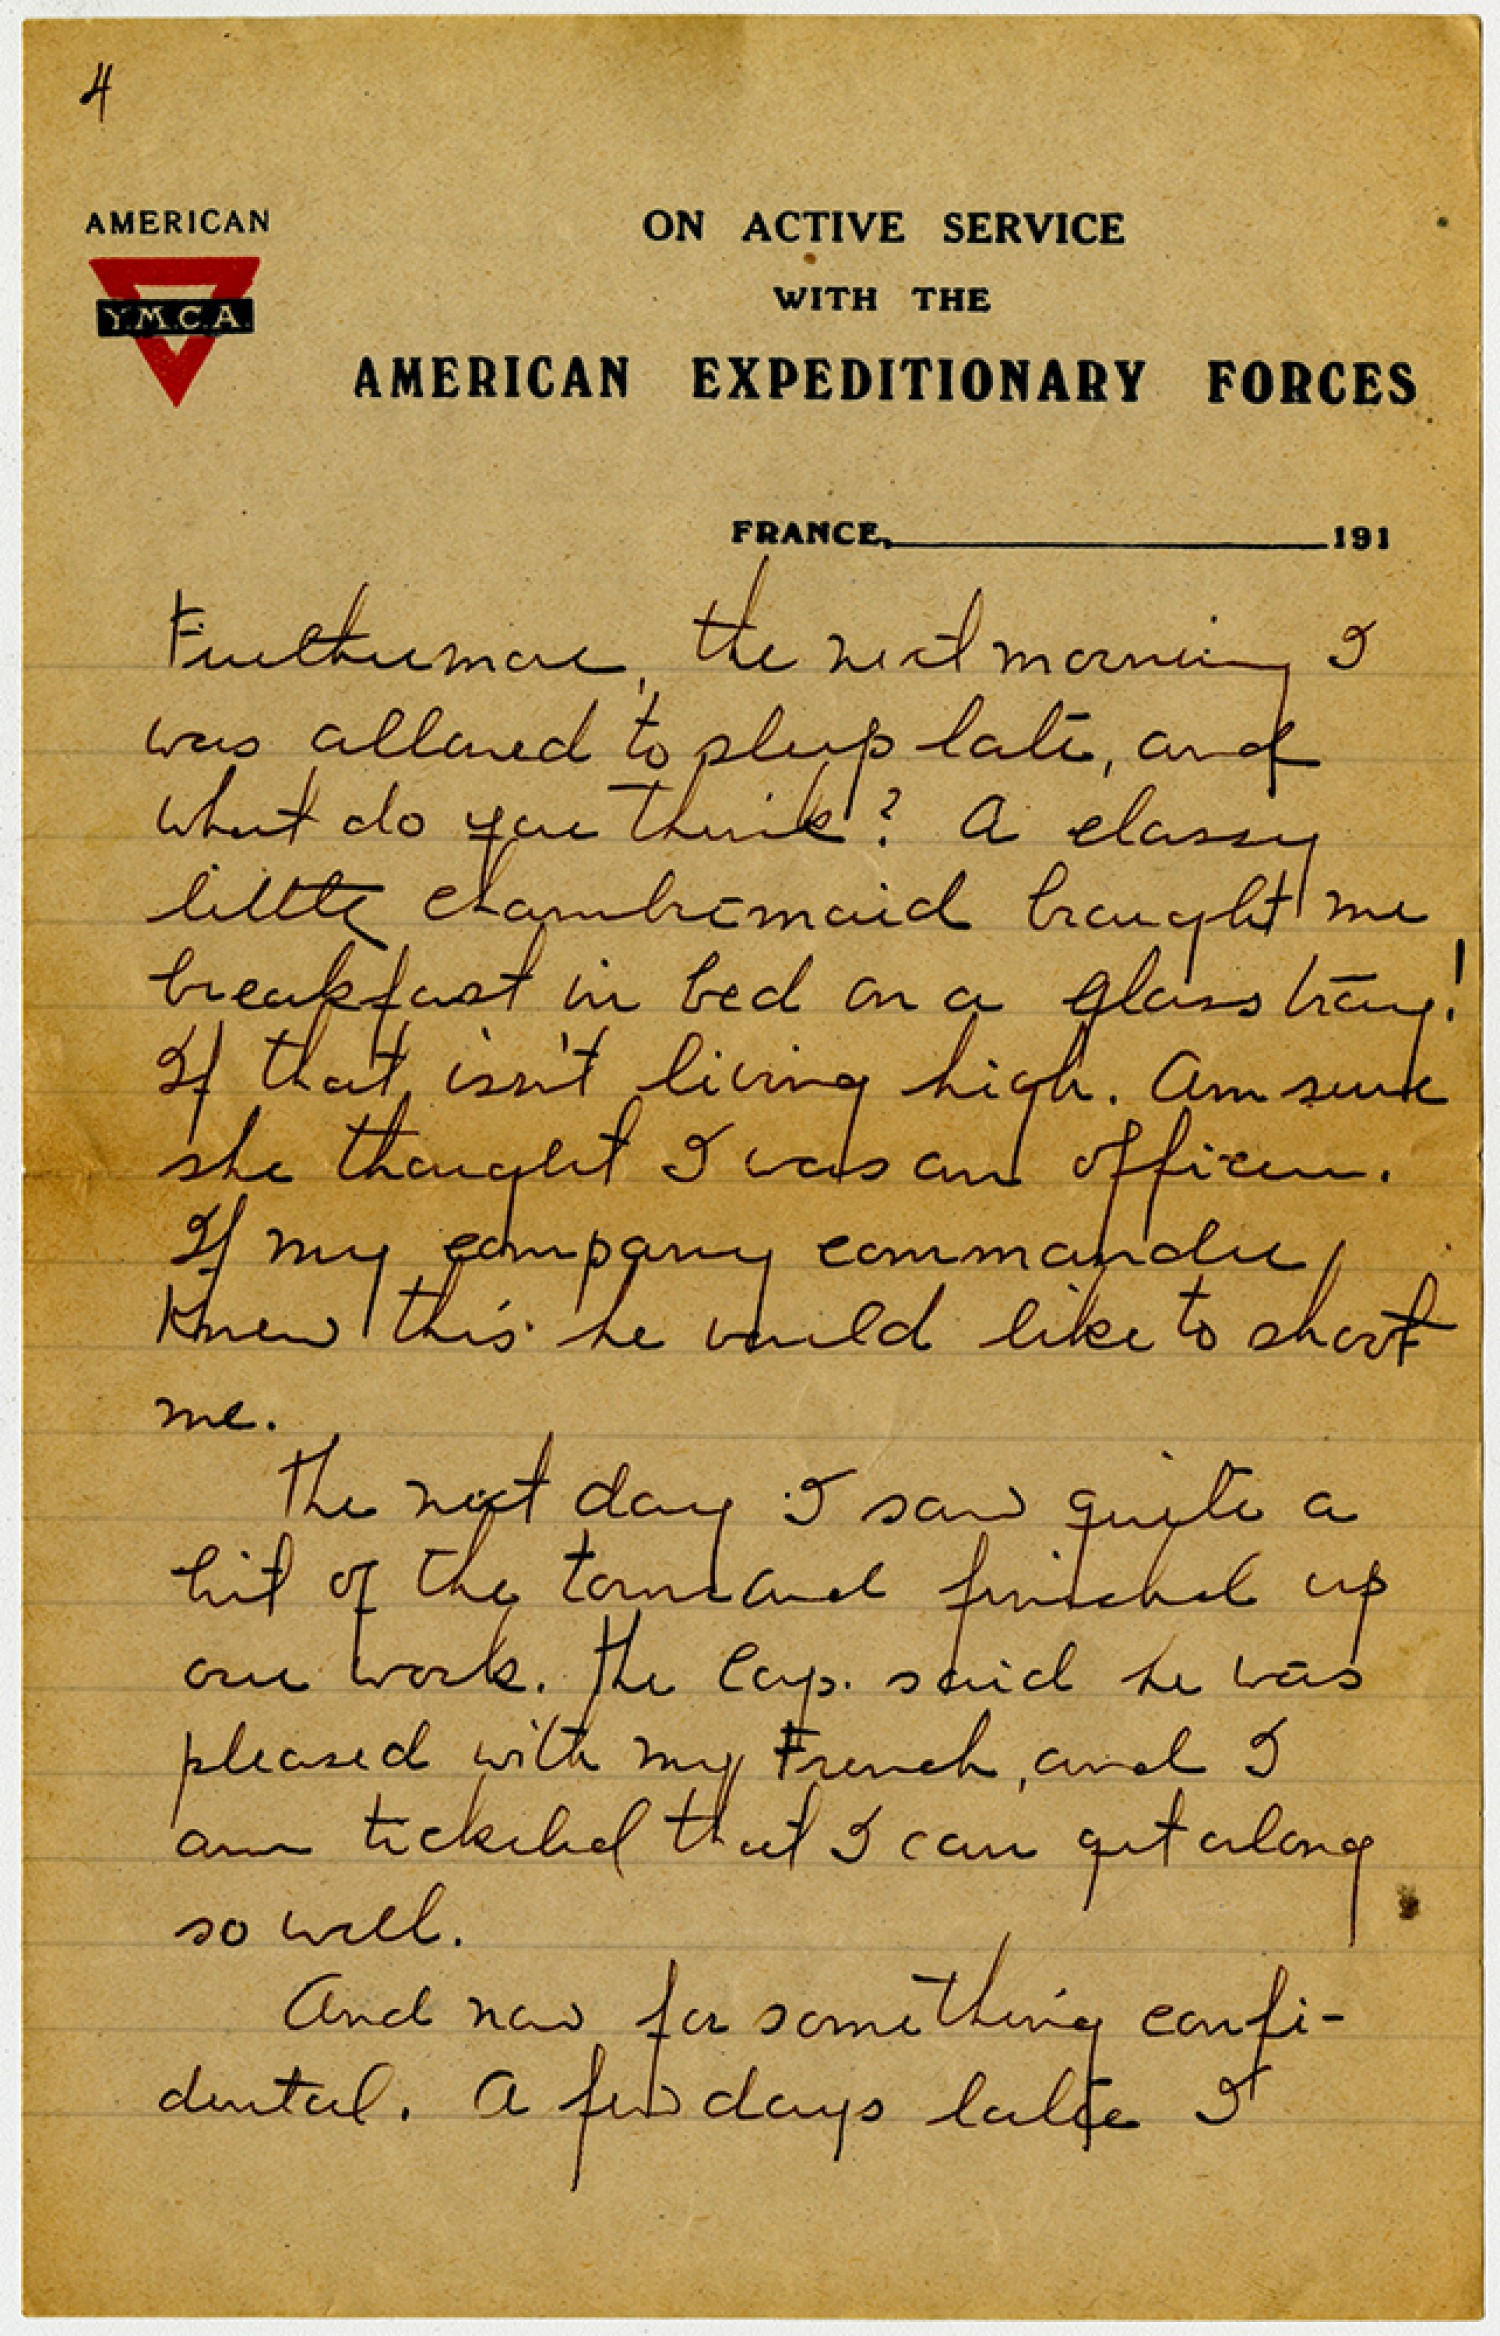 4
AMERICAN
Y.M.C.A.
ON ACTIVE SERVICE
WITH THE
AMERICAN EXPEDITIONARY FORCES
FRANCE, 191
Furthermore, the next morning I
was allowed to sleep late, and
what do you think? A classy
little chambermaid brought me
breakfast in bed on a glass tray!
If that isn't living high. Am sure
she thought I was an officer.
If my company commander
knew this he would like to shoot
me.
The next day I saw quite a
bit of the town and finished up
our work. The Cap. said he was
pleased with my French, and I
am tickeled that I can get along
so well.
And now for something confi-
dental. A few days later I